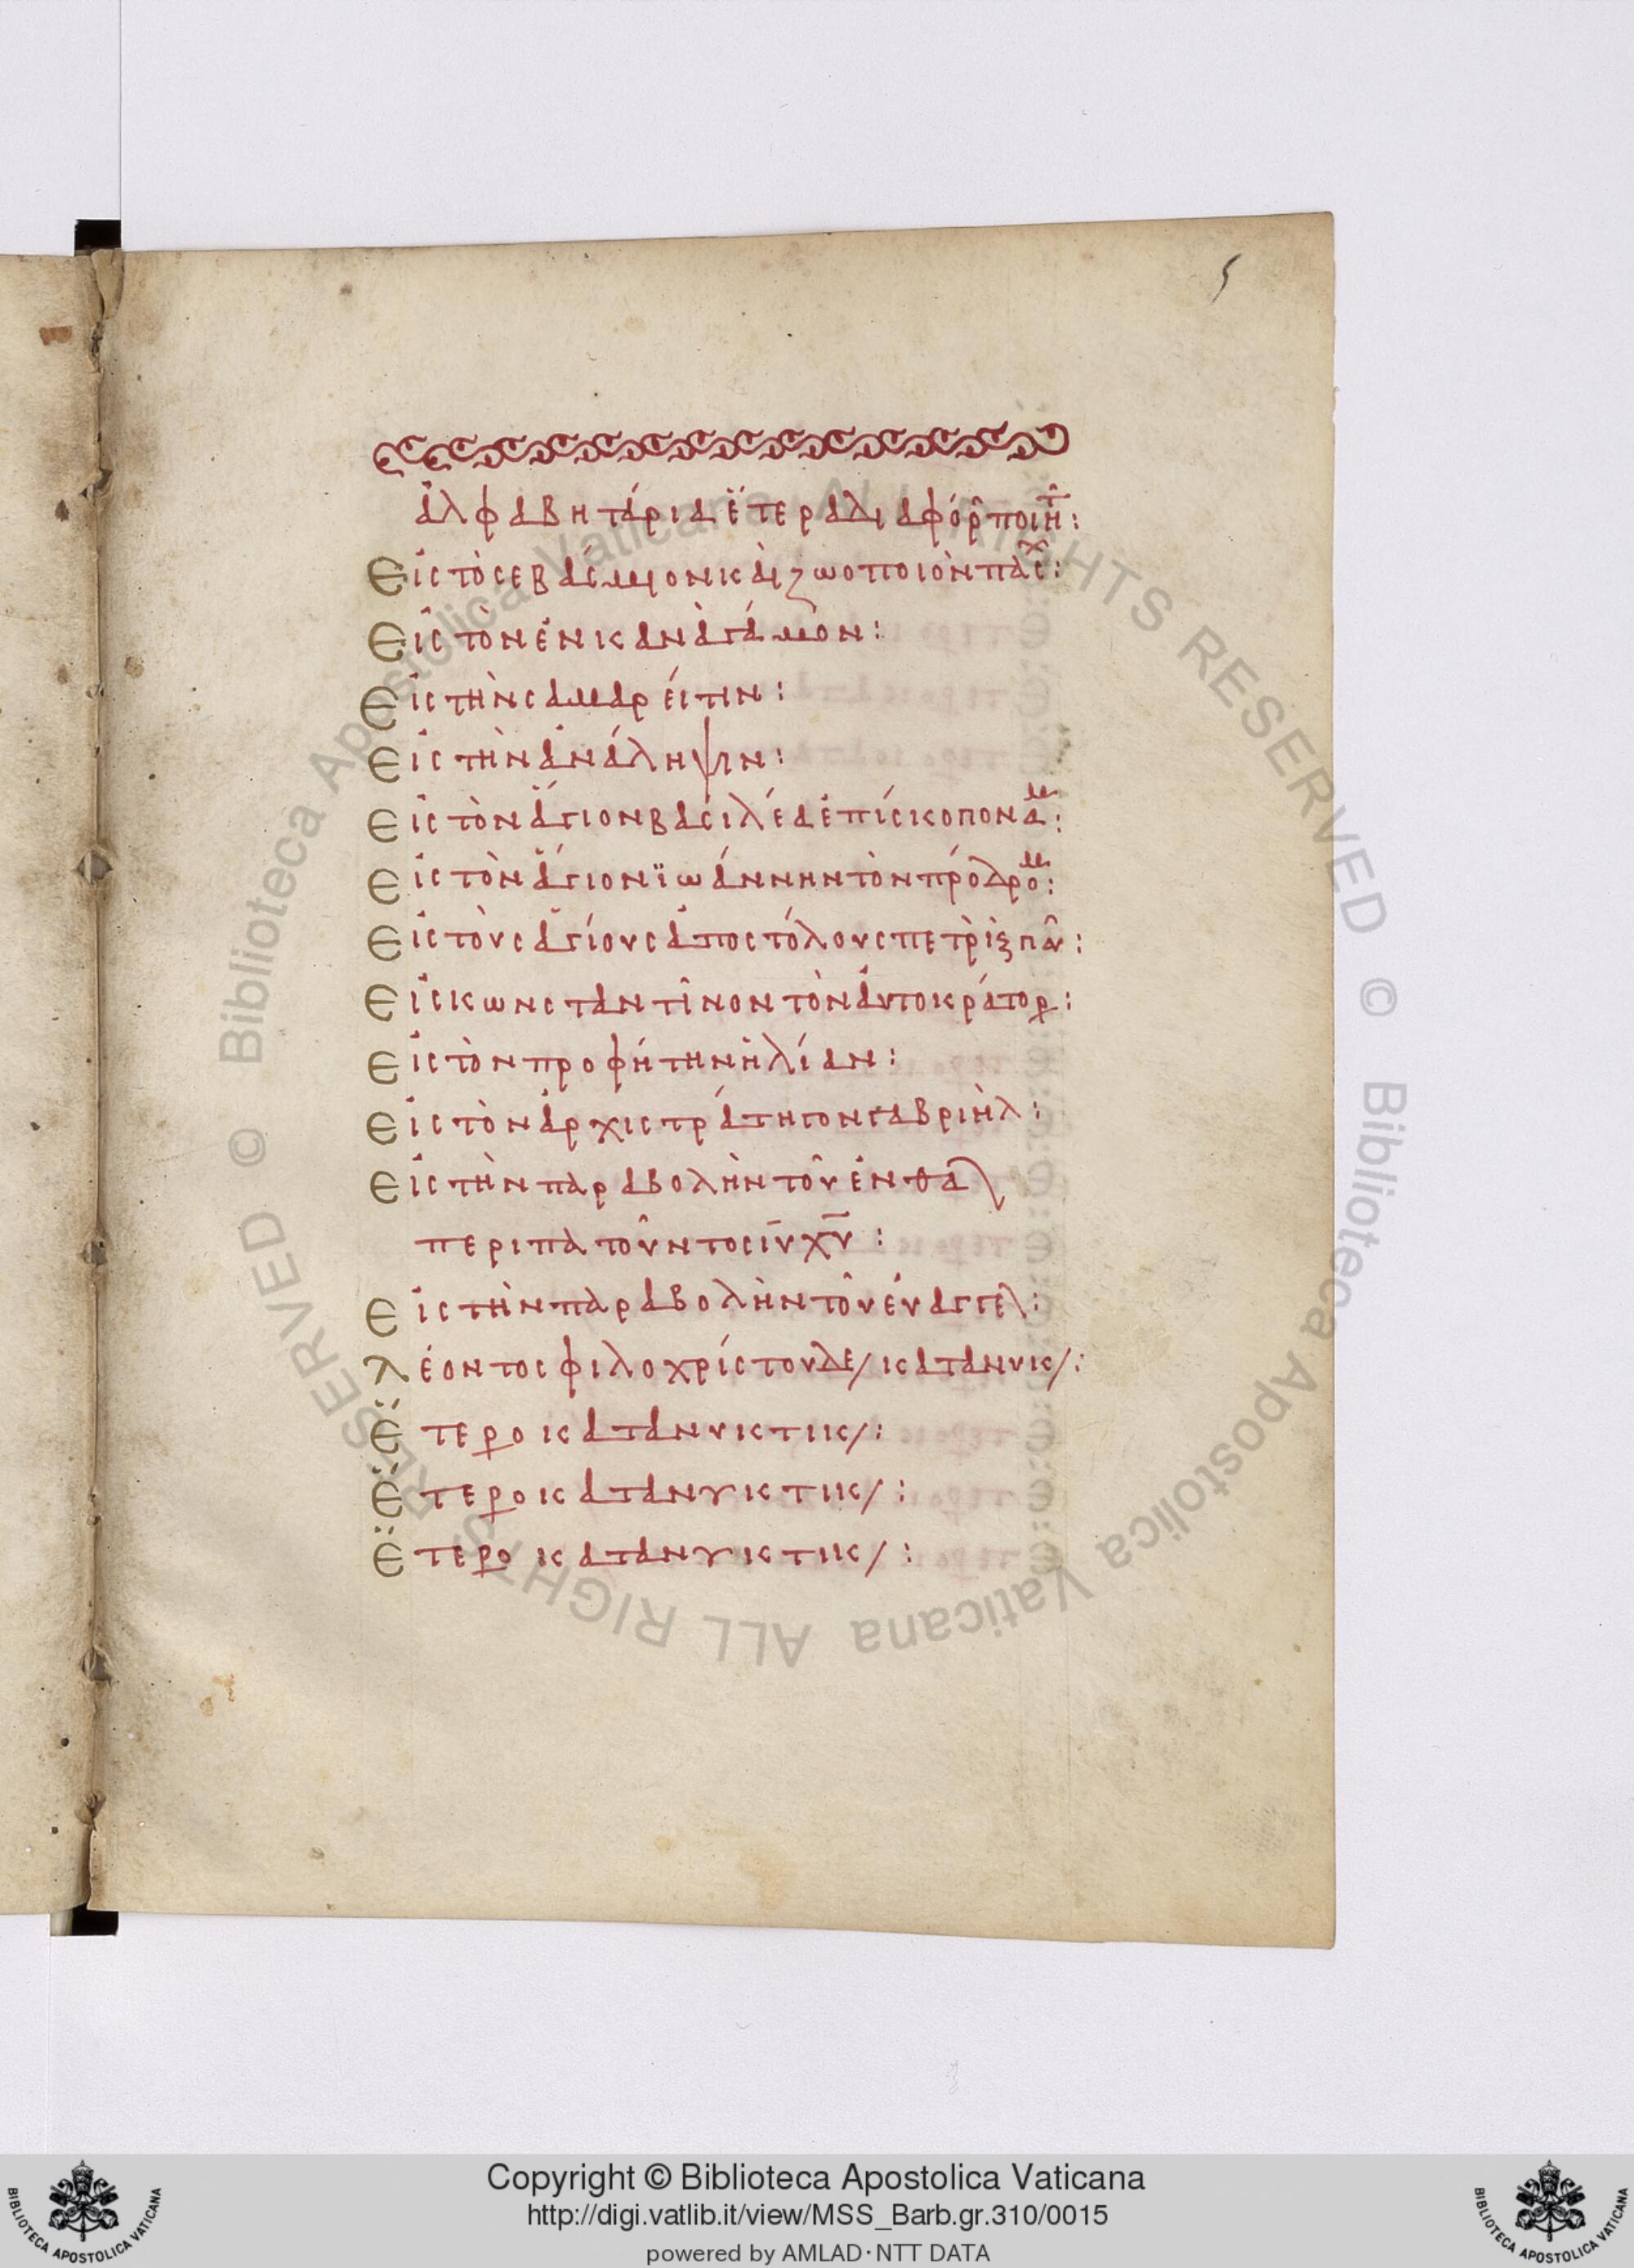 5
ἀλφαβητάρια ἕτερα διαφόρ ποιητ:
Εἰς τὸ σεβάσμιον καὶ ζωοποιὸν πάσχ:
Εἰς τὸν ἐν κανᾶ γάμον:
Εἰς τὴν σαμαρείτιν:
Εἰς τὴν ἀνάληψιν:
Εἰς τὸν ἅγιον βασιλέα ἐπίσκοπον ἀμ:
Εἰς τὸν ἅγιον ϊωάννην τὸν πρόδρομ:
Εἰς τοὺς ἁγίους ἀποστόλους πετρ παυ:
Εἰς κωνσταντῖνον τὸν ἀυτοκράτορ:
Εἰς τὸν προφήτην ἠλίαν:
Εἰς τὸν ἀρχιστράτηγον γαβριὴλ:
Εἰς τὴν παραβολὴν τοῦ ἐν θαλ
περιπατοῦντος ἰυ χυ:
Εἰς τὴν παραβολὴν τοῦ ἐυαγγελ:
λέοντος φιλοχρίστου δε/ κατανυκ/:
Ἕτερο κατανυκτικ/:
Ἕτερο κατανυκτικ/:
Ἕτερο κατανυκτικ/:
© Biblioteca Apostolica Vaticana ALL RIGHTS RESERVED © Biblioteca Apostolica Vaticana ALL RIGHTS RESERVED
Copyright © Biblioteca Apostolica Vaticana
http://digi.vatlib.it/view/MSS_Barb.gr.310/0015
powered by AMLAD·NTT DATA
BIBLIOTECA APOSTOLICA VATICANA
BIBLIOTECA APOSTOLICA VATICANA